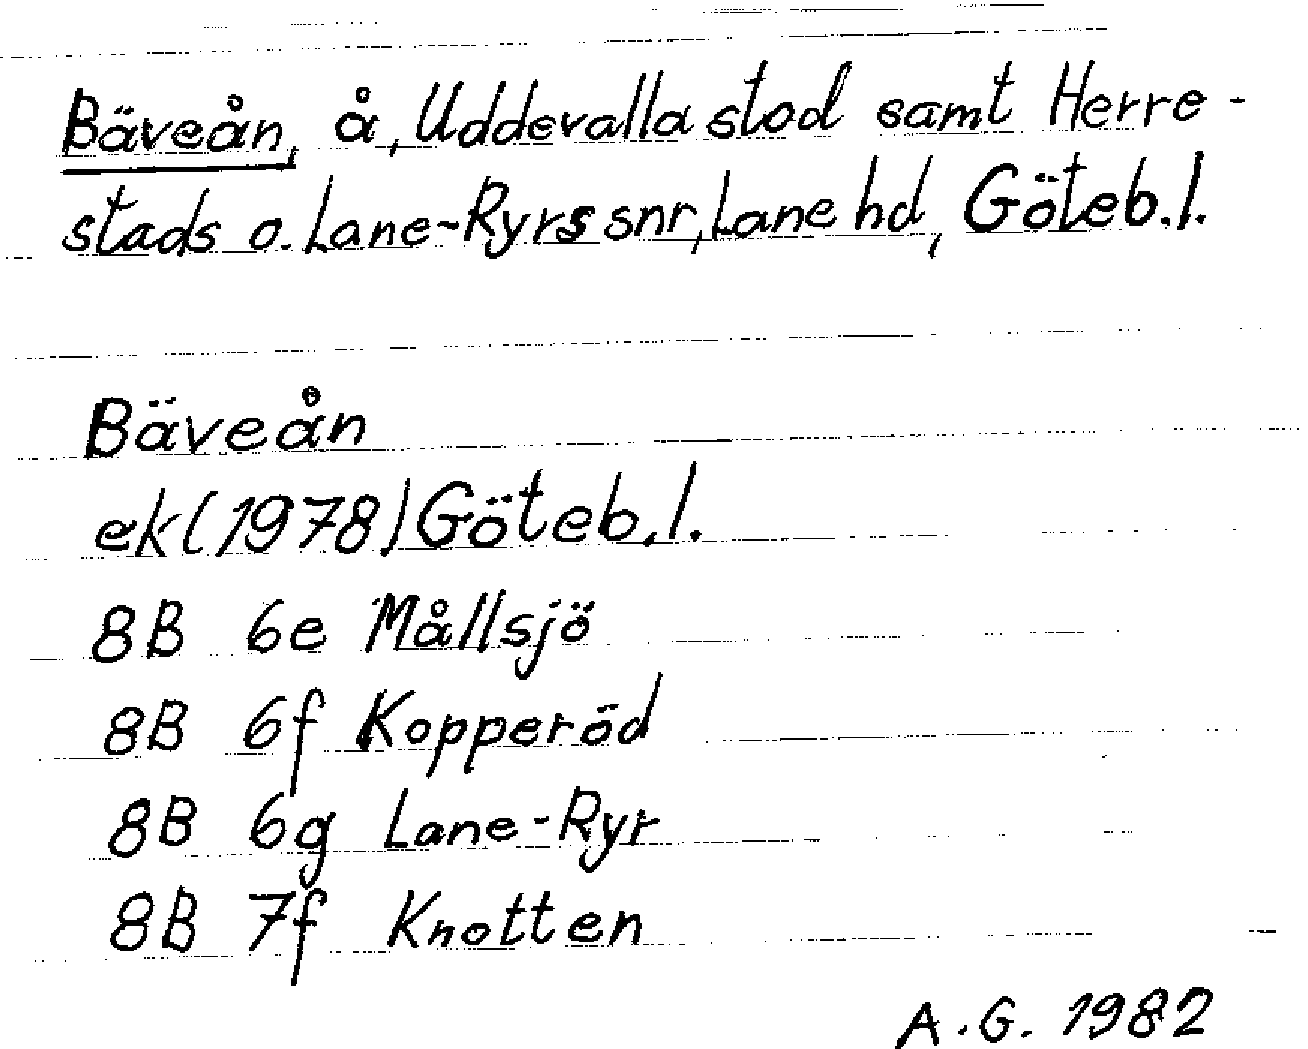 Bäveån, å, Uddevalla stod samt Herre-
stads o. Lane-Ryrs snr, Lane hd, Göteb.l.
Bäveån
ek(1978) Göteb.l.
8B 6e Mållsjö
8B 6f Kopperöd
8B 6g Lane-Ryr
8B 7f Knotten
A.G. 1982